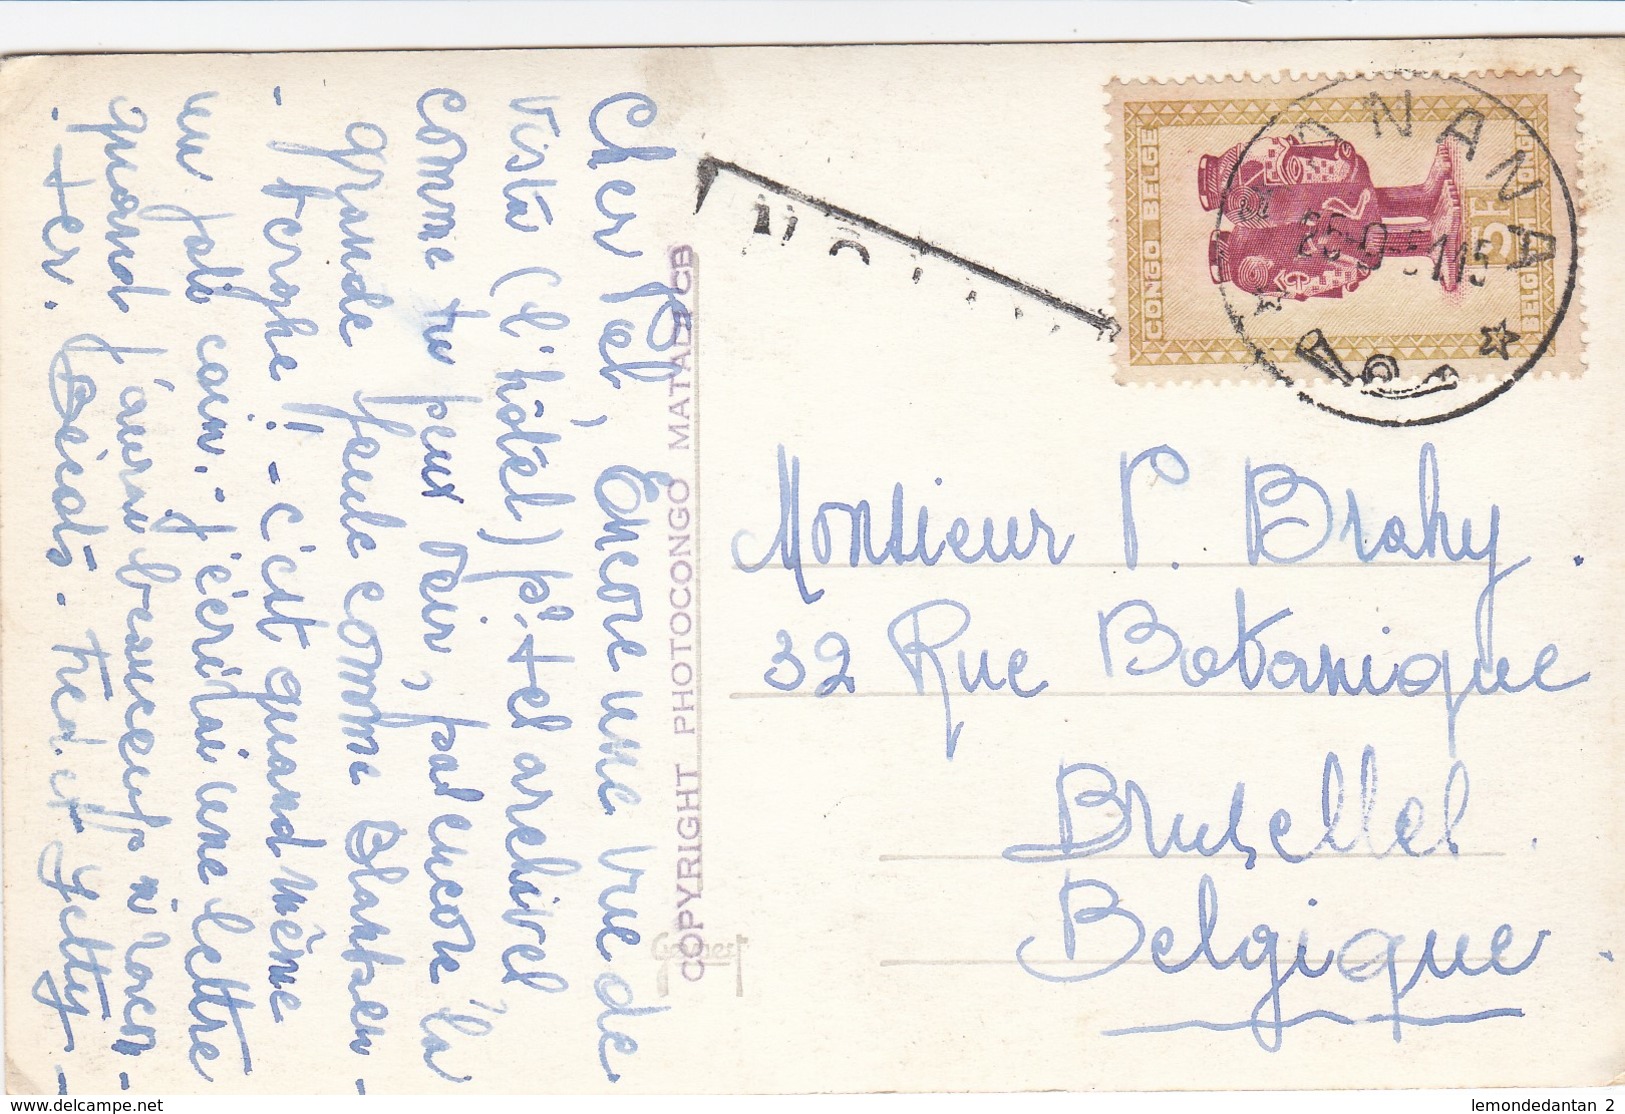 Cher Pol, Encore une vue de
Vista (l'hôtel) pl. + el archivel
comme tu peux voir, pas encore la
grande foule comme Blanken-
- berghe !! - c'est quand même
un joli coin. - j'écrirai une lettre
quand j'aurai beaucoup à racon-
- ter. Fred. et Jetty -
COPYRIGHT PHOTOCONGO MATADI CB
Gevaert
CONGO BELGE
BELGISCH CONGO
5F
BANANA
Monsieur P. Brahy.
32 Rue Botanique
Bruxelles
Belgique.
www.delcampe.net
lemondedantan 2